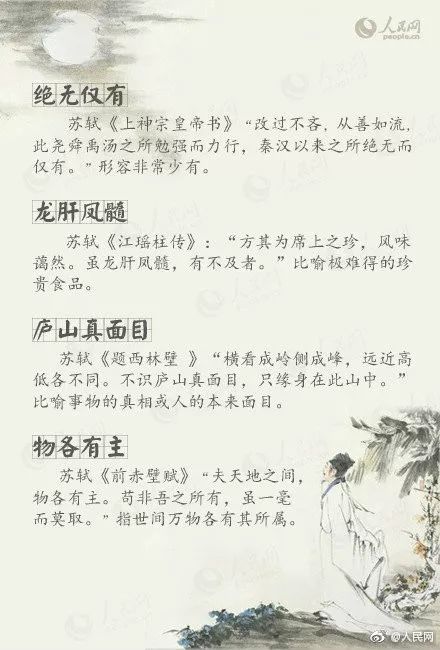 人民网
people.cn
绝无仅有
苏轼《上神宗皇帝书》“改过不吝，从善如流，
此尧舜禹汤之所勉强而力行，秦汉以来之所绝无而
仅有。”形容非常少有。
龙肝凤髓
苏轼《江瑶柱传》：“方其为席上之珍，风味
蔼然。虽龙肝凤髓，有不及者。”比喻极难得的珍
贵食品。
庐山真面目
苏轼《题西林壁 》“横看成岭侧成峰，远近高
低各不同。不识庐山真面目，只缘身在此山中。”
比喻事物的真相或人的本来面目。
物各有主
苏轼《前赤壁赋》“夫天地之间，
物各有主。苟非吾之所有，虽一毫
而莫取。”指世间万物各有其所属。
@人民网